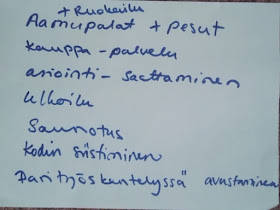 + Ruokailu
Aamupalat + pesut
kauppa - palvelu
asiointi - saattaminen
Ulkoilu
Saunotus
Kodin siistiminen
Parityöskentelyssä avustaminen